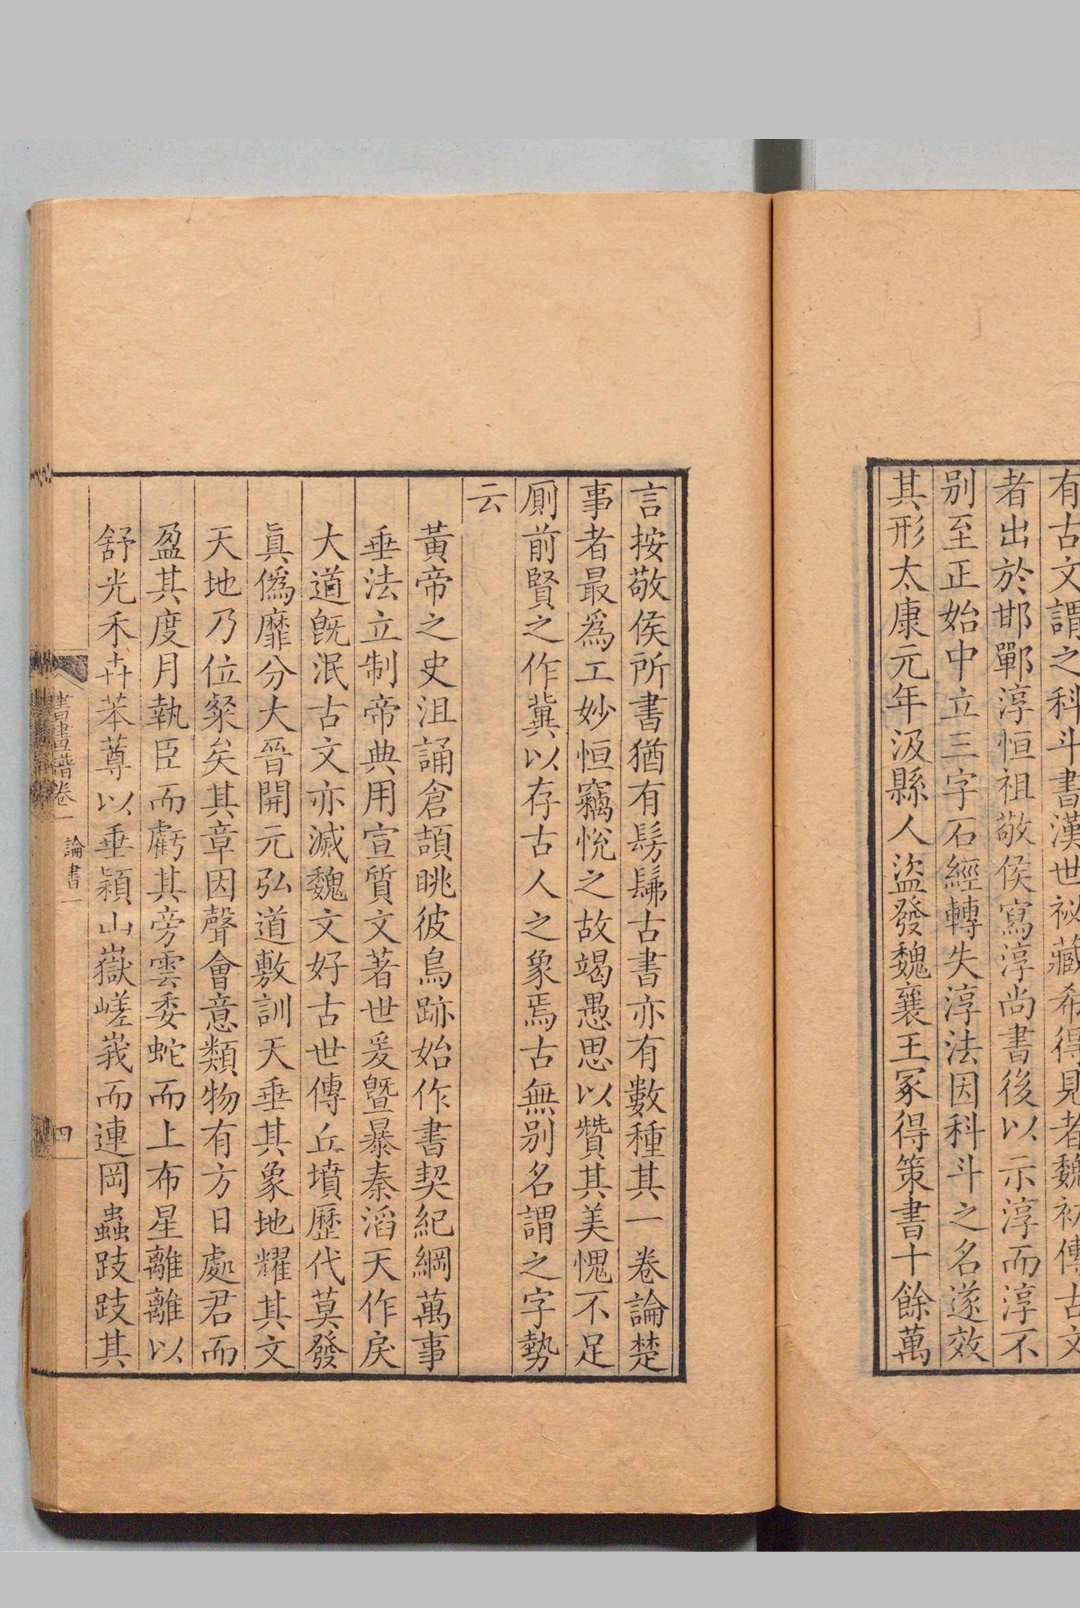 有古文謂之科斗書漢世祕藏希得見者魏初傳古文
者出於邯鄲淳恒祖敬侯寫淳尚書後以示淳而淳不
别至正始中立三字石經轉失淳法因科斗之名遂效
其形太康元年汲縣人盜發魏襄王冢得策書十餘萬
言按敬侯所書猶有髣髴古書亦有數種其一卷論楚
事者最爲工妙恒竊悅之故竭愚思以贊其美愧不足
厠前賢之作冀以存古人之象焉古無别名謂之字勢
云
黃帝之史沮誦倉頡眺彼鳥跡始作書契紀綱萬事
垂法立制帝典用宣質文著世爰曁暴秦滔天作戾
大道旣泯古文亦滅魏文好古世傳丘墳歷代莫發
眞僞靡分大晉開元弘道敷訓天垂其象地耀其文
天地乃位粲矣其章因聲會意類物有方日處君而
盈其度月執臣而虧其旁雲委蛇而上布星離離以
舒光禾卉苯䔿以垂穎山嶽嵯峩而連岡蟲跂跂其
書畫譜卷一 論書一 四